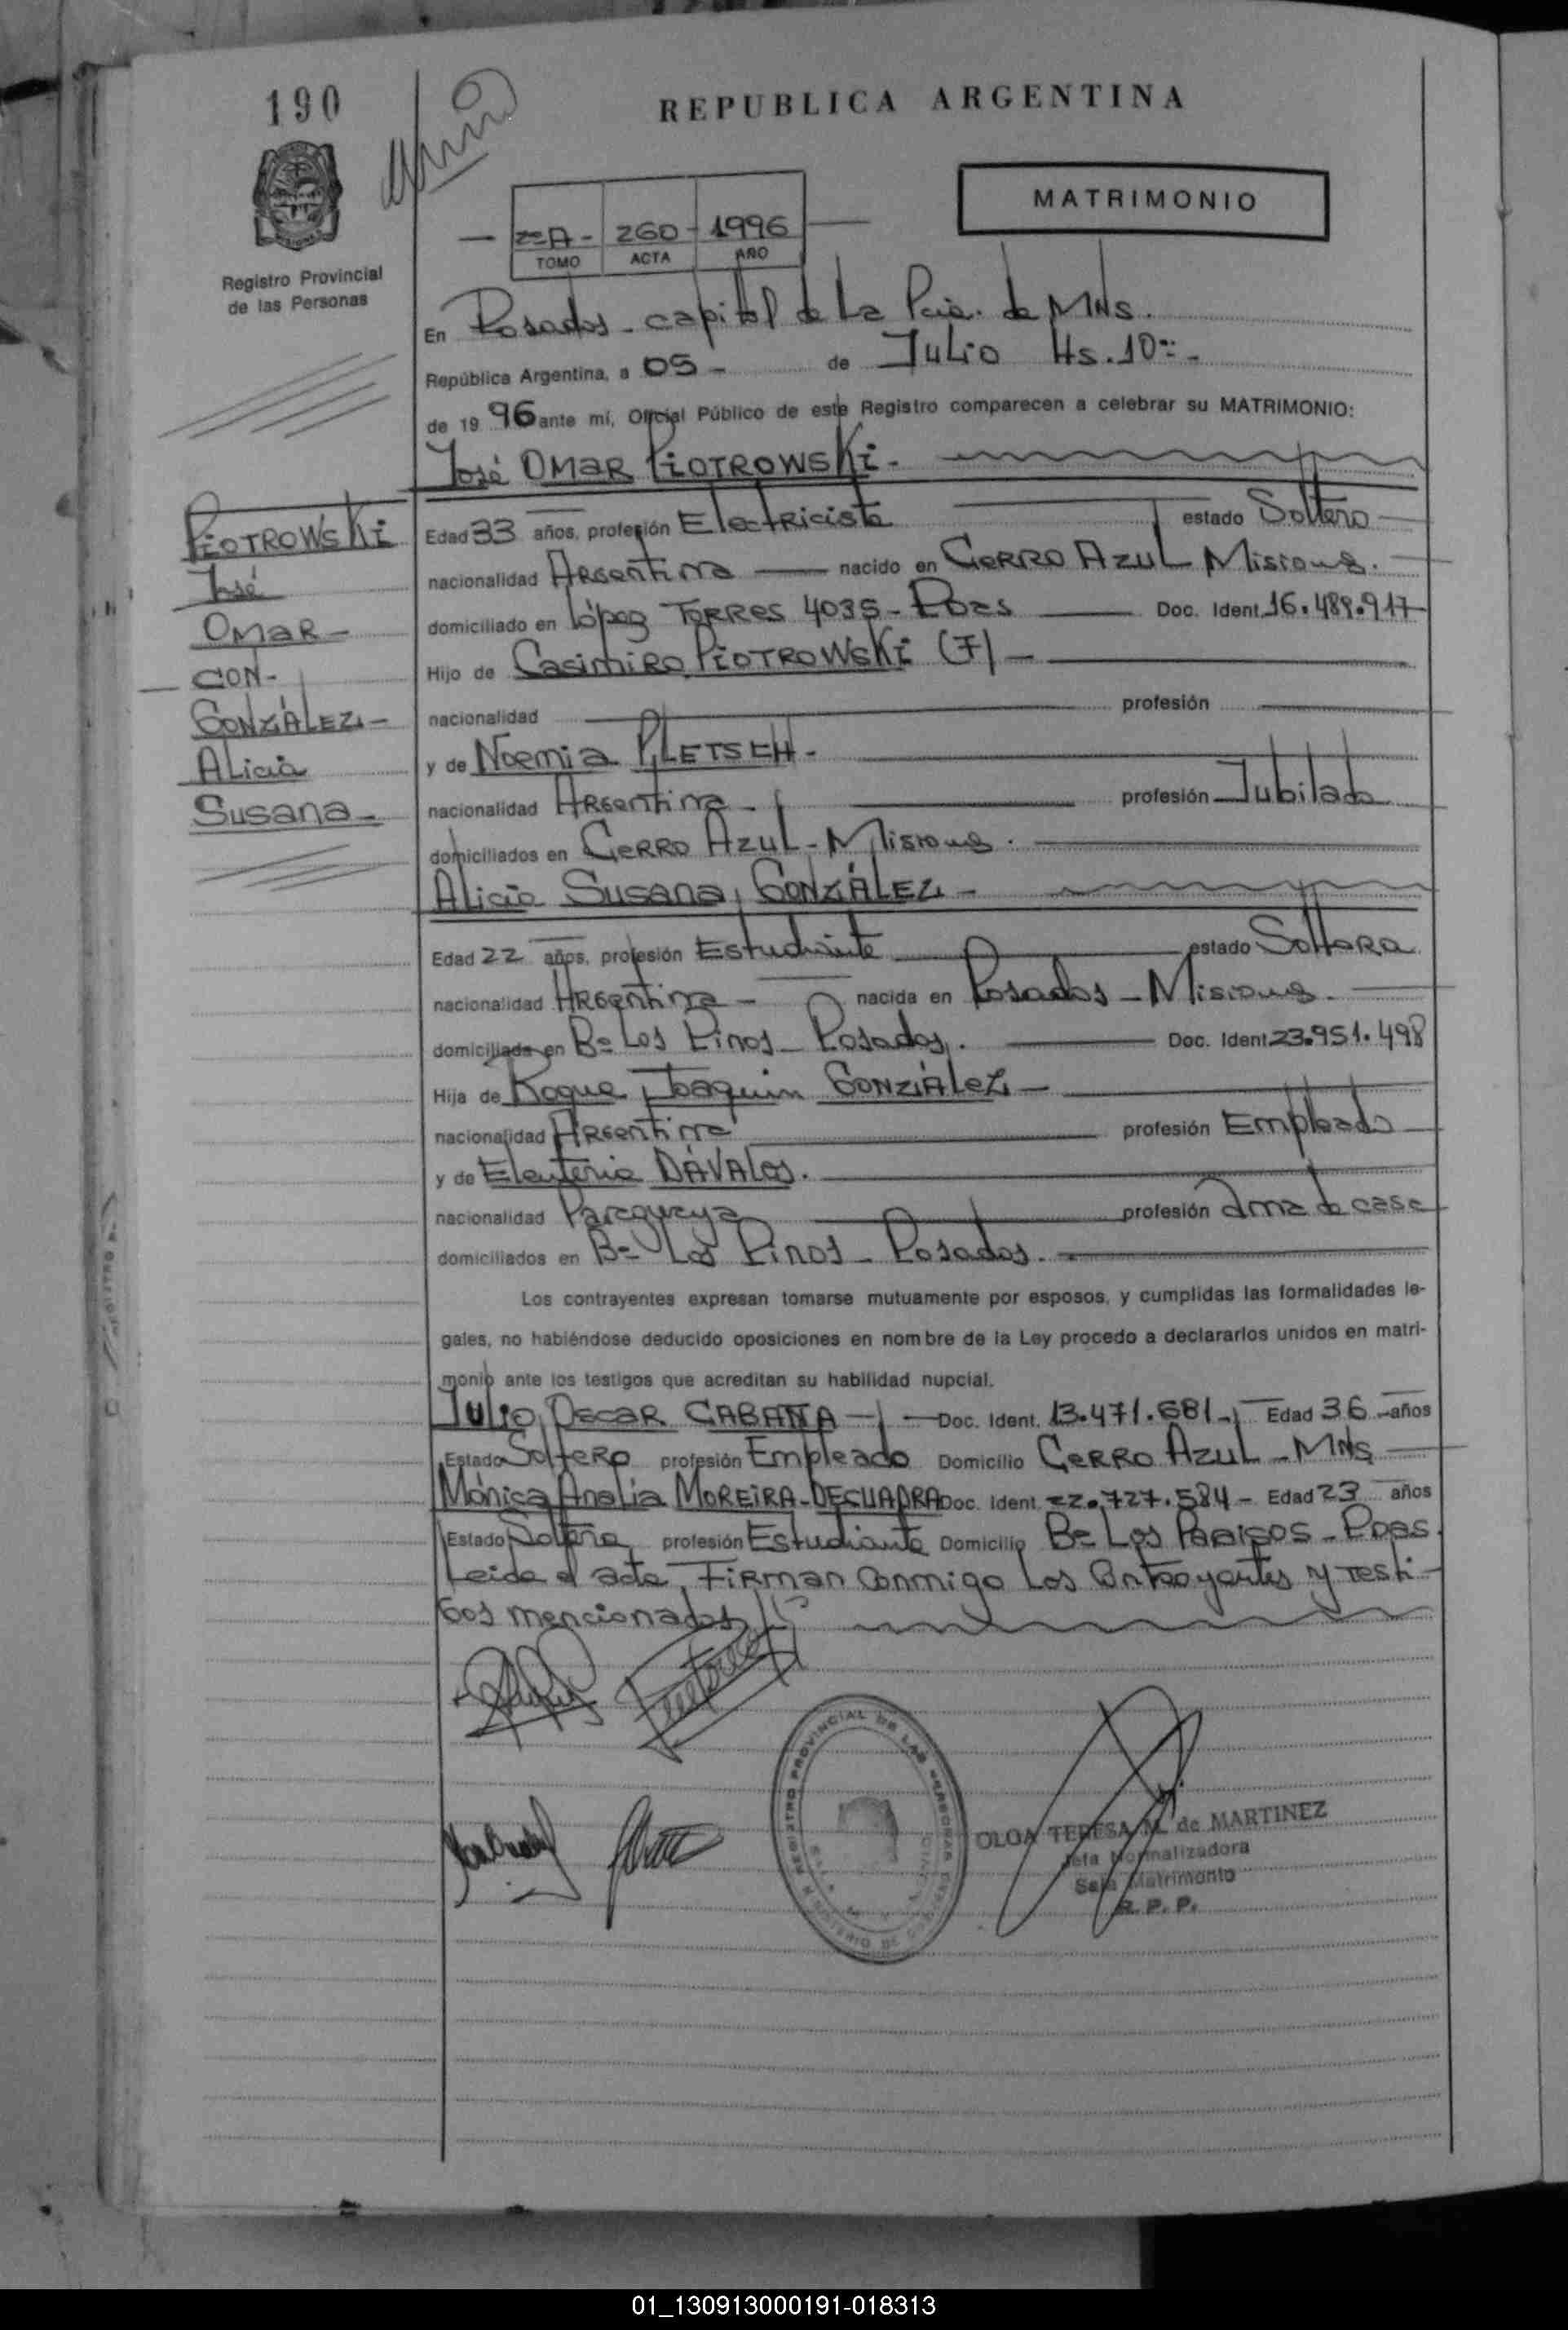 190
REPUBLICA ARGENTINA
MATRIMONIO
260 - 1996
TOMO ACTA AÑO
Registro Provincial
de las Personas
En Posadas - capital de La Pcia. de MNS.
República Argentina, a 05 - de Julio Hs. 10
de 19 96 ante mí, Oficial Público de este Registro comparecen a celebrar su MATRIMONIO:
José OMAR PIOTROWSKI -
PIOTROWSKI
José
OMAR -
CON -
GONZÁLEZ -
Alicia
Susana -
Edad 33 años, profesión Electricista estado Soltero
nacionalidad Argentina nacido en CERRO AZUL Misiones.
domiciliado en López TORRES 4035 - Doc. Ident. 16.489.917
Hijo de Casimiro PIOTROWSKI (F) -
nacionalidad profesión
y de Noemia PLETSCH -
nacionalidad Argentina - profesión Jubilada
domiciliados en CERRO AZUL - Misiones.
Alicia Susana GONZÁLEZ -
Edad 22 años, profesión Estudiante estado Soltera
nacionalidad Argentina - nacida en Posadas - Misiones.
domiciliada en Bº Los Pinos - Posadas. Doc. Ident. 23.951.498
Hija de Roque Joaquin GONZÁLEZ -
nacionalidad Argentina profesión Empleado
y de Eleuteria DÁVALOS.
nacionalidad Paraguaya profesión ama de casa
domiciliados en Bº Los Pinos - Posadas.
Los contrayentes expresan tomarse mutuamente por esposos, y cumplidas las formalidades le-
gales, no habiéndose deducido oposiciones en nombre de la Ley procedo a declararlos unidos en matri-
monio ante los testigos que acreditan su habilidad nupcial.
Julio OSCAR CABAÑA - Doc. Ident. 13.471.681 - Edad 36 - años
Estado Soltero profesión Empleado Domicilio CERRO AZUL - MNS
Mónica Analía MOREIRA - DECUADRA Doc. Ident. 22.727.584 - Edad 23 años
Estado Soltera profesión Estudiante Domicilio Bº Los - PDAS.
Leida el acta, Firman conmigo Los Contrayentes y testi-
gos mencionados
REGISTRO PROVINCIAL DE LAS PERSONAS
MINISTERIO DE
OLGA TERESA M. de MARTINEZ
Jefa Normalizadora
Sala Matrimonio
R. P. P.
01_130913000191-018313